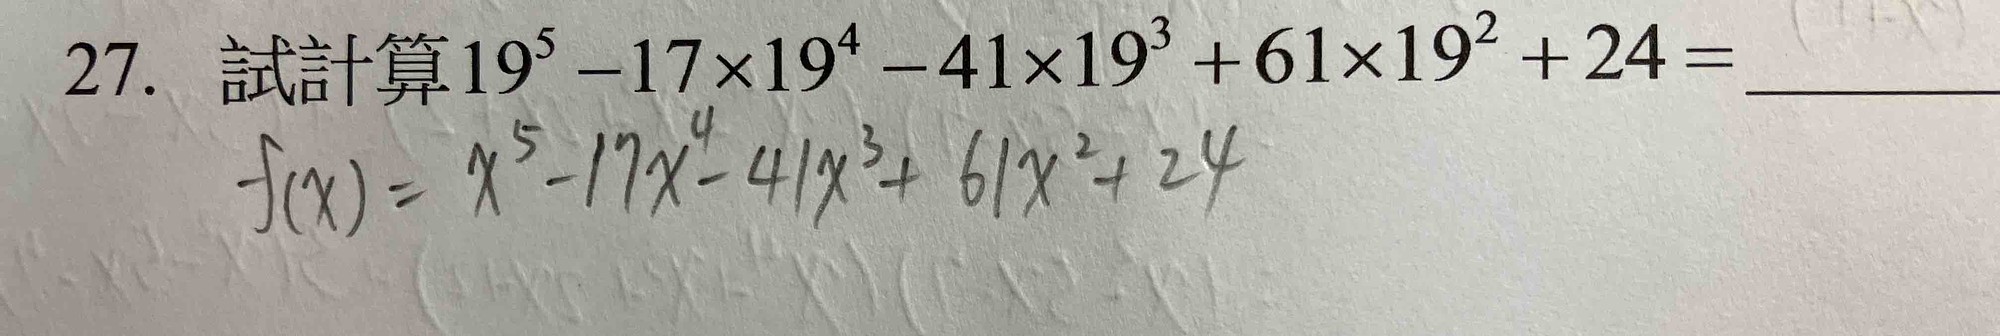 27. 試計算19⁵ −17×19⁴ −41×19³ +61×19² +24 = ______
f(x) = x⁵ -17x⁴ - 41x³ + 61x² + 24